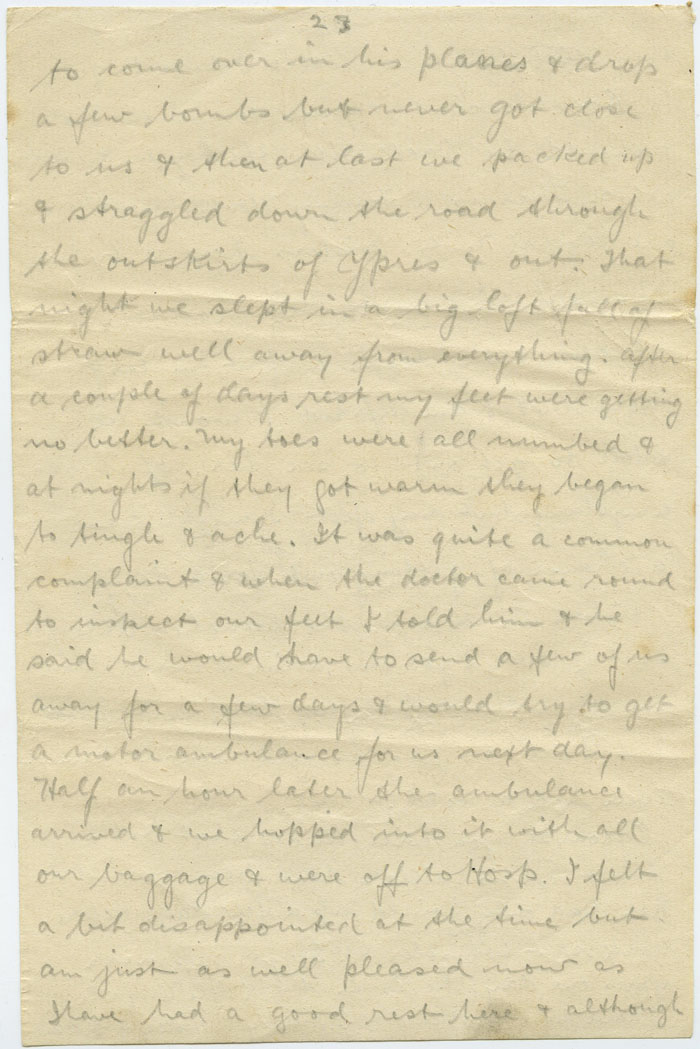 23
to come over in his planes & drop
a few bombs but never got close
to us & then at last we packed up
& straggled down the road through
the outskirts of Ypres & out. That
night we slept in a big loft full of
straw well away from everything. After
a couple of days rest my feet were getting
no better. My toes were all numbed &
at nights if they got warm they began
to tingle & ache. It was quite a common
complaint & when the doctor came round
to inspect our feet I told him & he
said he would have to send a few of us
away for a few days & would try to get
a motor ambulance for us next day.
Half an hour later the ambulance
arrived & we hopped into it with all
our baggage & were off to Hosp. I felt
a bit disappointed at the time but
am just as well pleased now as
I have had a good rest here & although